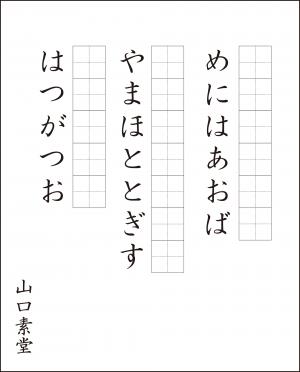 めにはあおば
やまほととぎす
はつがつお
山口素堂